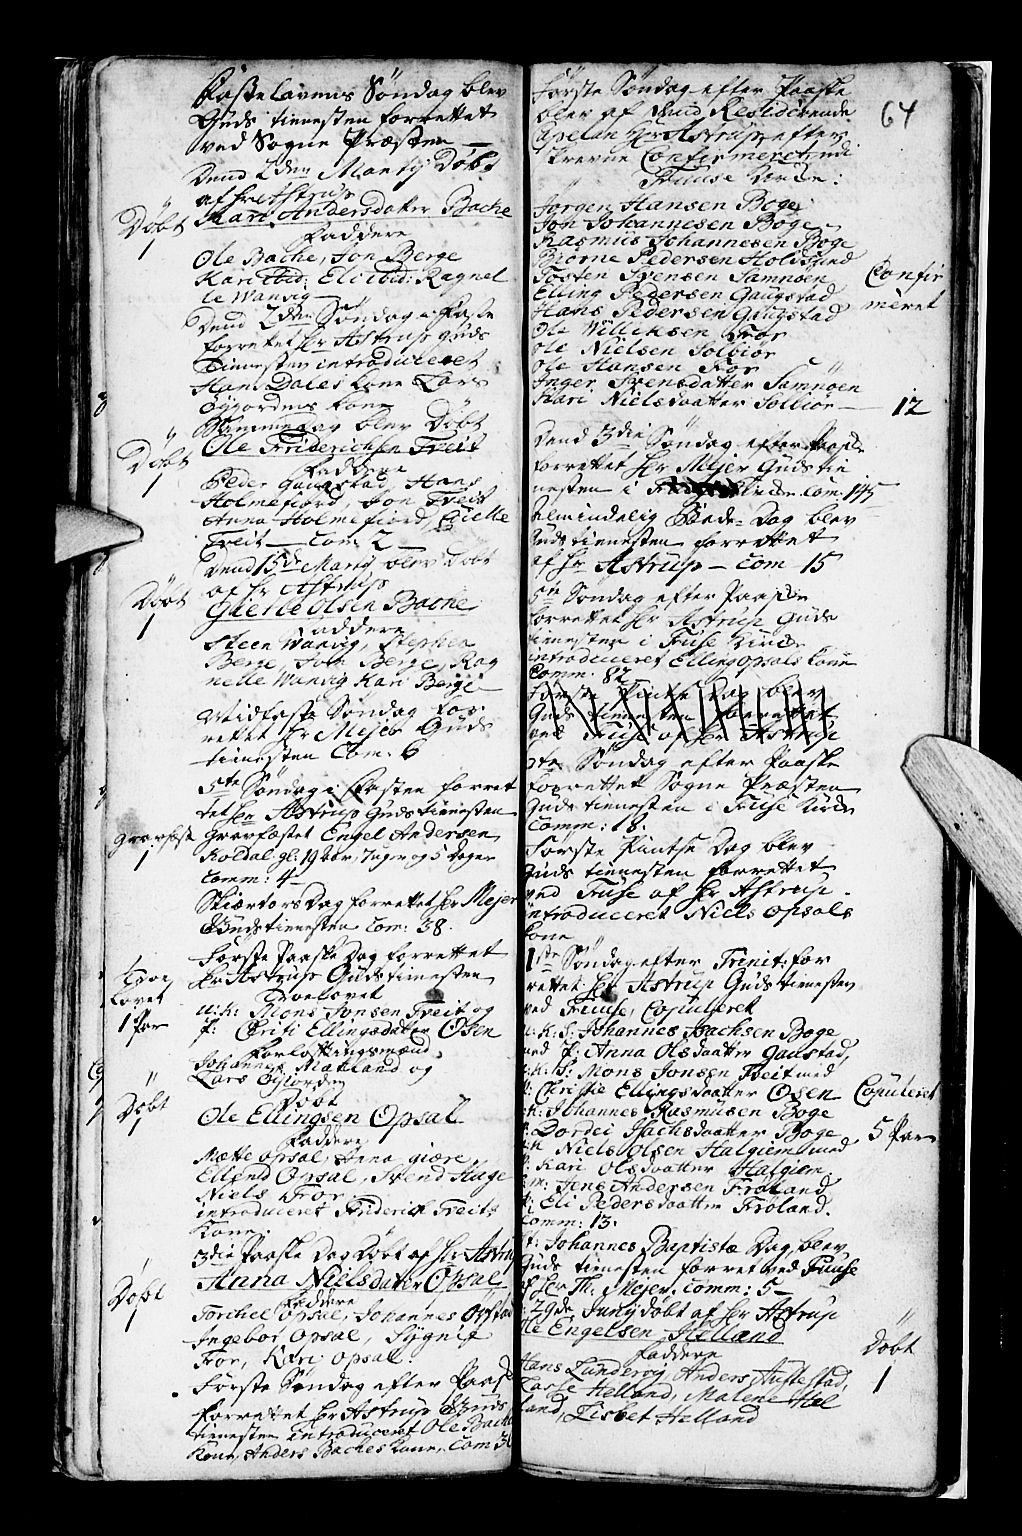 Fastelavens Söndag blev
Guds tienesten forrettet
ved Sogne Præsten
Dend 2den Marty Döbt
af Hr Astrup
Döbt
1
Kari Andersdater Bache
Faddere
Ole Bache, Jon Berge
Kari ibid: Eli ibid: Ragnel
le Wanvig
Dend 2den Söndag i Faste
forrettet Hr Astrup Guds
tienesten introduceret
Hans Dales Kone Lars
Öyjordens Kone
Samme Dag blev Döbt
Döbt
1
Ole Friderichsen Treit
Faddere
Peder Gaugstad, Hans
Holmefiord, Jon Treit
Anna Holmefiord,
Treit com 2
Dend 15de Marty blev Döbt
af Hr Astrup
Döbt
1
Giertle Olsen Bache
Faddere
Steen Wanvig, Stephen
Berge, Jon Berge, Rag
nelle Wanvig Kari Berge
Midfaste Söndag for
rettet Hr Mejer Guds
tienesten Com: 6
5te Söndag i Fasten forret
tet Hr Astrup Guds tienesten
Gravfæste
1
Gravfæstet Engel Andersen
Koldal gl: 19 aar, 7 uger og 5 Dager
Comm: 4
Skiærtorsdag forrettet Hr Mejer
Guds tienesten Com: 38.
Første Paaske Dag forrettet
Hr Astrup Guds tienesten
Troe
lovet
1 Par
Troelovet
u: k: Mons Jonsen Treit og
p: Christi Ellingsdater Osen
Forlovtningsmænd
Johannes Makland og
Lars Öyiorden
Döbt
1
Döbt
Ole Ellingsen Opsal
Faddere
Mætte opsal, Anna giære,
Ellend Opsal, Svend Hage
Niels Tror
introduceret Friderich Treits
Kone
3die Paaske Dag Döbt af Hr Astrup
Döbt
1
Anna Nielsdater Opsal
Faddere
Torchel Opsal, Johannes Ofstad
Ingebor Opsal, Sygnif
For, Kari opsal.
Første Söndag efter Paask
forrettet Hr Astrup Guds
tienesten introduceret Ole Bache
Kone, Anders Baches Kone, Com 30
64
Første Söndag efter Paaske
blev af Dend Residerende
Capelan Hr Astrup efter
skrevne Confirmeret udi
Fuuse Kirke:
Jörgen Hansen Boge
Jon Johannesen Boge
Rasmus Johannesen Boge
Biörne Pedersen Holdsund
Torsten Svensen Samnöen
Confir
meret
Elling Pedersen Gaugstad
Hans Pedersen Gaugstad
Ole Willichsen For
Ole Nielsen Solbiör
Ole Hansen For
Inger Svensdatter Samnöen
Kari Nielsdaatter Solbiör
12
Dend 3die Söndag efter Paaske
forrettet Hr Mejer Guds tie
nesten i Kirke com: 145
Almindelig Bede-Dag blev
Guds tienesten forrettet
af Hr Astrup com 15
5te Söndag efter Paaske
forrettet Hr Astrup Guds
tienesten i Fuse Kirke
introduceret Elling opsals Kone
Comm: 82
Første Pintse Dag blev
Guds tienesten forrettet
ved Fuse af Hr Astrup
Söndag efter Paaske
forrettet Sogne Præsten
Guds tienesten i Fuse Kirke
Comm: 18.
Første Pintse Dag blev
Guds tienesten forrettet
ved Fuse af Hr Astrup.
introduceret Niels Opsals
Kone
1ste Söndag efter Trinit: for
rettet Hr Astrup Guds tienesten
ved Fuuse, Copuleret
u: k: S: Johannes Isachsen Boge
med P: Anna Olsdaatter Gaustad,
u: k: S: Mons Jonsen Treit med
P: Christie Ellingsdaatter Osen
Copuleret
u: k: Johannes Rasmusen Boge
P: Dordei Isachsdaatter Boge
5 Par
Niels Olsen Halgiem med
P: Kari Olsdaatter Halgiem
Jens Andersen Fröland
P: Eli Pedersdaatter Fröland.
Comm: 13.
St: Johannes Baptistæ Dag blev
Guds tienesten forret ved Fuuse
af Hr Th. Mejer. Comm: 5
29de Juny döbt af Hr Astrup
Ole Engelsen Helland
Döbt
1
Faddere
Hans Lundervig, Anders Austestad,
Lasse Helland, Malene Hel
land, Lisbet Helland